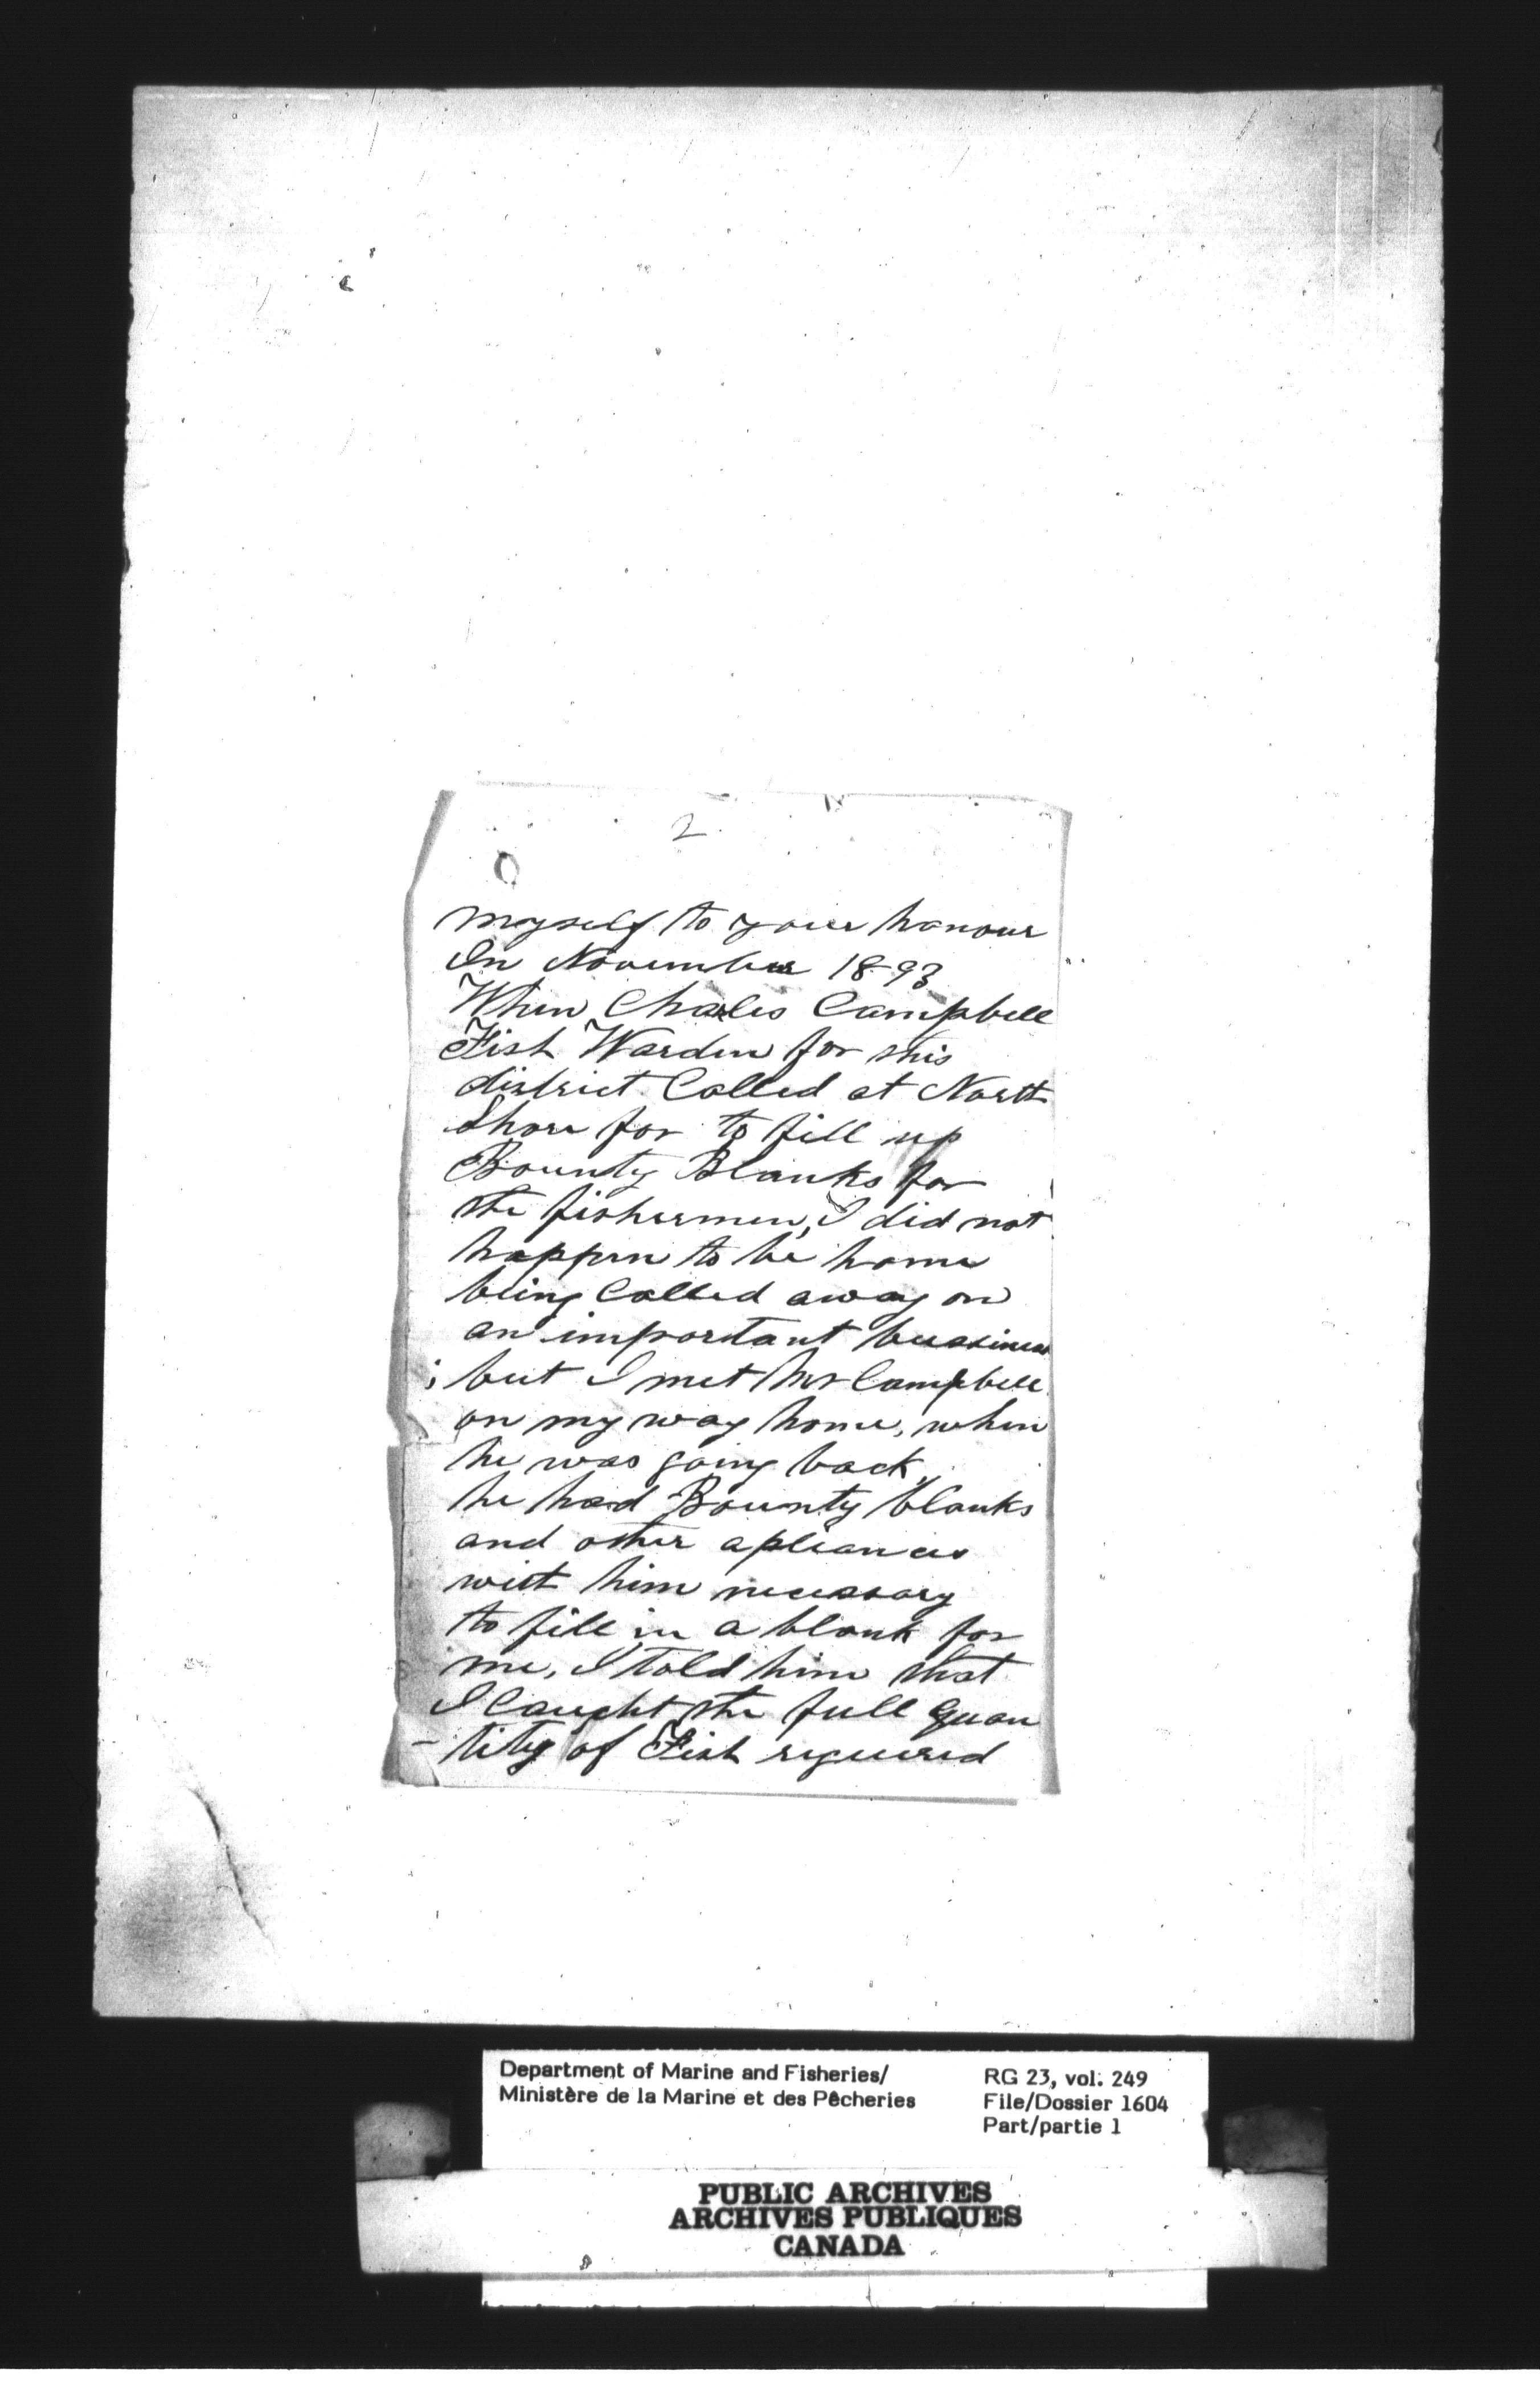 2
myself to your honour
In November 1893
When Charles Campbell
Fish Warden for this
district Called at North
Shore for to fill up
Bounty Blanks for
the fishermen, I did not
happen to be home
being Called away on
an important buasiness
but I met Mr Campbell
on my way home, when
he was going back,
he had Bounty blanks
and other apliances
with him necessary
to fill in a blank for
me, I told him that
I Caught the full Quan
-tity of Fish required
Department of Marine and Fisheries/
Ministère de la Marine et des Pêcheries
RG 23, vol. 249
File/Dossier 1604
Part/partie 1
PUBLIC ARCHIVES
ARCHIVES PUBLIQUES
CANADA